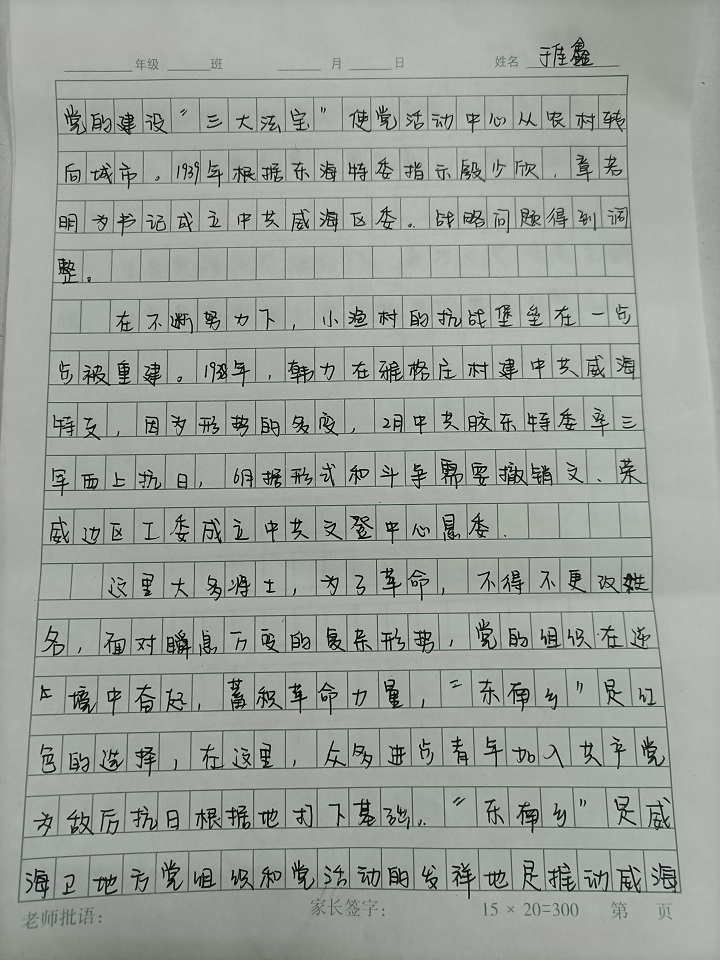 年级 班 月 日 姓名 于佳鑫
党的建设“三大法宝”使党活动中心从农村转
向城市。1939年根据东海特委指示殷少欣、章若
明为书记成立中共威海区委。战略问题得到调
整。
在不断努力下，小渔村的抗战堡垒在一点
点被重建。1938年，韩力在雅格庄村建中共威海
特支，因为形势的多变，2月中共胶东特委率三
军西上抗日，6月据形式和斗争需要撤销文、荣
威边区工委成立中共文登中心县委.
这里大多将士，为了革命，不得不更改姓
名，面对瞬息万变的复杂形势，党的组织在逆
境中奋起，蓄积革命力量，“东南乡”是红
色的选择，在这里，众多进步青年加入共产党
为敌后抗日根据地打下基础。“东南乡”是威
海卫地方党组织和党活动的发祥地是推动威海
老师批语： 家长签字： 15 × 20=300 第 页